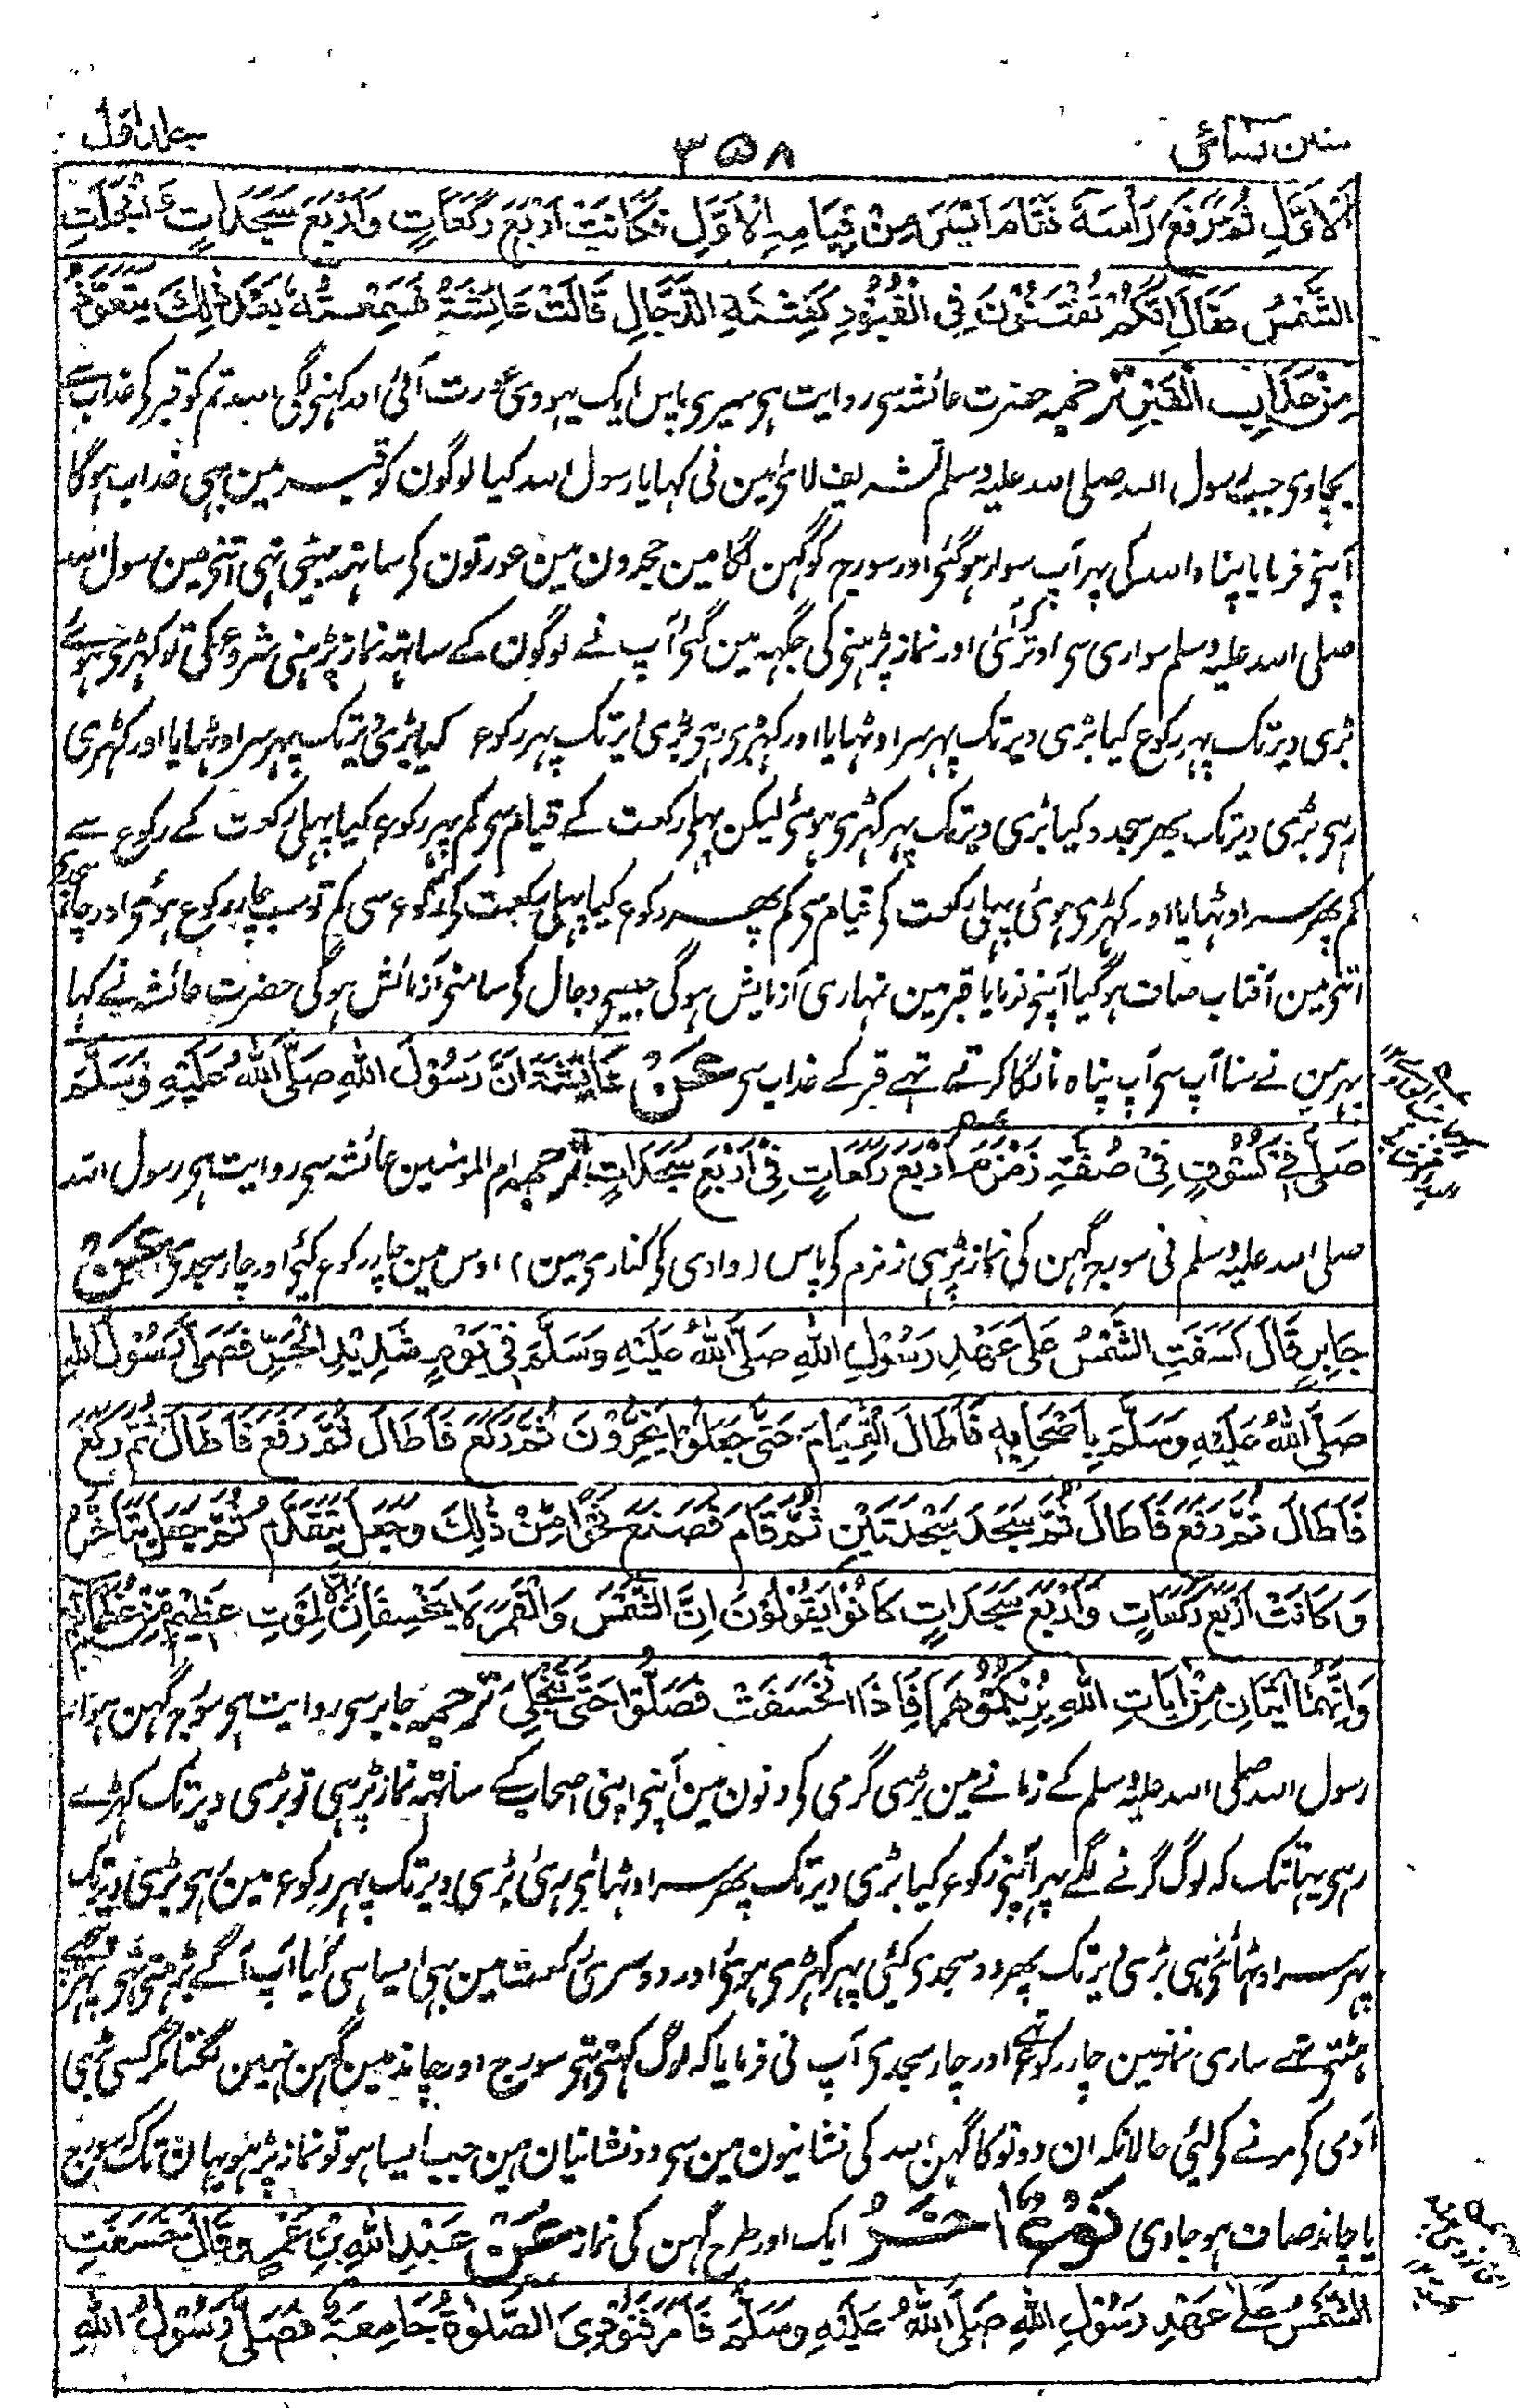 سنن نسائی
۳۵۸
جلد اول
الْاَوَّلِ ثُمَّ رَفَعَ رَاْسَهٗ فَقَامَ اَيْسَرَ مِنْ قِيَامِهِ الْاَوَّلِ فَكَانَتْ اَرْبَعَ رَكَعَاتٍ وَاَرْبَعَ سَجَدَاتٍ وَانْجَلَتِ
الشَّمْسُ فَقَالَ اِنَّكُمْ تُفْتَنُوْنَ فِي الْقُبُوْرِ كَفِتْنَةِ الدَّجَّالِ قَالَتْ عَائِشَةُ فَسَمِعْتُهٗ بَعْدَ ذٰلِكَ يَتَعَوَّذُ
مِنْ عَذَابِ الْقَبْرِ ترجمہ حضرت عائشہ سی روایت ہی میری پاس ایک یہودی عورت آئی اور کہنی لگی اللہ تم کو قبر کی عذاب سے
بچاوی جب رسول اللہ صلی اللہ علیہ وسلم تشریف لائی مین نی کہا یا رسول اللہ کیا لوگون کو قبر مین بہی عذاب ہوگا
آپنی فرمایا پناہ اللہ کی پہر آپ سوار ہو گئی اور سورج کو گہن لگا مین حجرون مین عورتون کی ساتہہ بیٹہی تہی اتنی مین رسول اللہ
صلی اللہ علیہ وسلم سواری سی اوتر کر آئی اور نماز پڑہنی کی جگہہ مین گئی آپ نے لوگون کے ساتہہ نماز پڑہنی شروع کی تو کہڑی ہوئے
بڑی دیر تک پہر رکوع کیا بڑی دیر تک پہر سر اوٹہایا اور کہڑی رہی بڑی دیر تک پہر رکوع کیا بڑی دیر تک پہر سر اوٹہایا اور کہڑی
رہی بڑی دیر تک پھر سجدہ کیا بڑی دیر تک پہر کہڑی ہوئی لیکن پہلی رکعت کے قیام سی کم پہر رکوع کیا پہلی رکعت کے رکوع سے
کم پھر سر اوٹہایا اور کہڑی ہوئی پہلی رکعت کی قیام سی کم پھر رکوع کیا پہلی رکعت کی رکوع سی کم تو سب چار رکوع ہوئی اور چار سجدی
اتنی مین آفتاب صاف ہو گیا آپنی فرمایا قبر مین تمہاری آزمایش ہوگی جیسی دجال کی سامنی آزمائش ہوگی حضرت عائشہ نے کہا
پہر مین نے سنا آپ سی آپ پناہ مانگا کرتے تہے قبر کے عذاب سی عَنْ عَائِشَةَ اَنَّ رَسُوْلَ اللّٰهِ صَلَّى اللّٰهُ عَلَيْهِ وَسَلَّمَ
صَلّٰى فِيْ كُسُوْفٍ فِيْ صُفَّةِ زَمْزَمَ اَرْبَعَ رَكَعَاتٍ فِيْ اَرْبَعِ سَجَدَاتٍ ترجمہ ام المومنین عائشہ سی روایت ہی رسول اللہ
صلی اللہ علیہ وسلم نی سورج گہن کی نماز پڑہی زمزم کی پاس (وادی کی کناری مین) اوس مین چار رکوع کیئی اور چار سجدی عَنْ
جَابِرٍ قَالَ كَسَفَتِ الشَّمْسُ عَلٰى عَهْدِ رَسُوْلِ اللّٰهِ صَلَّى اللّٰهُ عَلَيْهِ وَسَلَّمَ فِيْ يَوْمٍ شَدِيْدِ الْحَرِّ فَصَلّٰى رَسُوْلُ اللّٰهِ
صَلَّى اللّٰهُ عَلَيْهِ وَسَلَّمَ بِاَصْحَابِهٖ فَاَطَالَ الْقِيَامَ حَتّٰى جَعَلُوْا يَخِرُّوْنَ ثُمَّ رَكَعَ فَاَطَالَ ثُمَّ رَفَعَ فَاَطَالَ ثُمَّ رَكَعَ
فَاَطَالَ ثُمَّ رَفَعَ فَاَطَالَ ثُمَّ سَجَدَ سَجْدَتَيْنِ ثُمَّ قَامَ فَصَنَعَ نَحْوًا مِّنْ ذٰلِكَ وَجَعَلَ يَتَقَدَّمُ ثُمَّ جَعَلَ يَتَاَخَّرُ
وَكَانَتْ اَرْبَعَ رَكَعَاتٍ وَاَرْبَعَ سَجَدَاتٍ كَانُوْا يَقُوْلُوْنَ اِنَّ الشَّمْسَ وَالْقَمَرَ لَا يَخْسِفَانِ اِلَّا لِمَوْتِ عَظِيْمٍ مِّنْ عُظَمَائِهِمْ
وَاِنَّهُمَا اٰيَتَانِ مِنْ اٰيَاتِ اللّٰهِ يُرِيْكُمُوْهُمَا فَاِذَا انْخَسَفَتْ فَصَلُّوْا حَتّٰى تَنْجَلِيَ ترجمہ جابر سی روایت ہی سورج گہن ہوا
رسول اللہ صلی اللہ علیہ وسلم کے زمانے مین بڑی گرمی کی دنون مین آپنی اپنی اصحاب کے ساتہہ نماز پڑہی تو بڑی دیر تک کہڑے
رہی یہانتک کہ لوگ گرنے لگے پہر آپنی رکوع کیا بڑی دیر تک پھر سر اوٹہائی رہی بڑی دیر تک پہر رکوع مین رہی بڑی دیر تک
پہر سر اوٹہائی رہی بڑی دیر تک پھر دو سجدی کیئی پہر کہڑی ہوئی اور دوسری رکعت مین بہی ایسا ہی کیا آپ آگے بڑہتی تہی پہر پیچہے
ہٹتی تہے ساری نماز مین چار رکوع تہے اور چار سجدی آپ نی فرمایا کہ لوگ کہتی تہی سورج اور چاند مین گہن نہین لگتا مگر کسی بڑی
آدمی کی مرنے کی لیئی حالانکہ ان دونو کا گہن اللہ کی نشانیون مین سی دو نشانیان ہین جب ایسا ہو تو نماز پڑہو یہان تک کہ سورج
یا چاند صاف ہو جاوی نَوْعٌ اٰخَرُ ایک اور طرح گہن کی نماز عَنْ عَبْدِ اللّٰهِ بْنِ عَمْرٍو قَالَ خَسَفَتِ
الشَّمْسُ عَلٰى عَهْدِ رَسُوْلِ اللّٰهِ صَلَّى اللّٰهُ عَلَيْهِ وَسَلَّمَ فَاَمَرَ فَنُوْدِيَ الصَّلٰوةُ جَامِعَةٌ فَصَلّٰى رَسُوْلُ اللّٰهِ